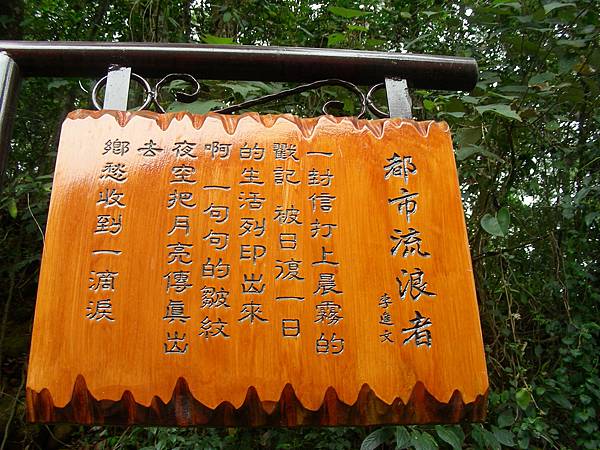 都市流浪者
李進文
一封信打上晨霧的
戳記 被日復一日
的生活列印出來
啊 一句句的皺紋
夜空把月亮傳真出
去
鄉愁收到一滴淚